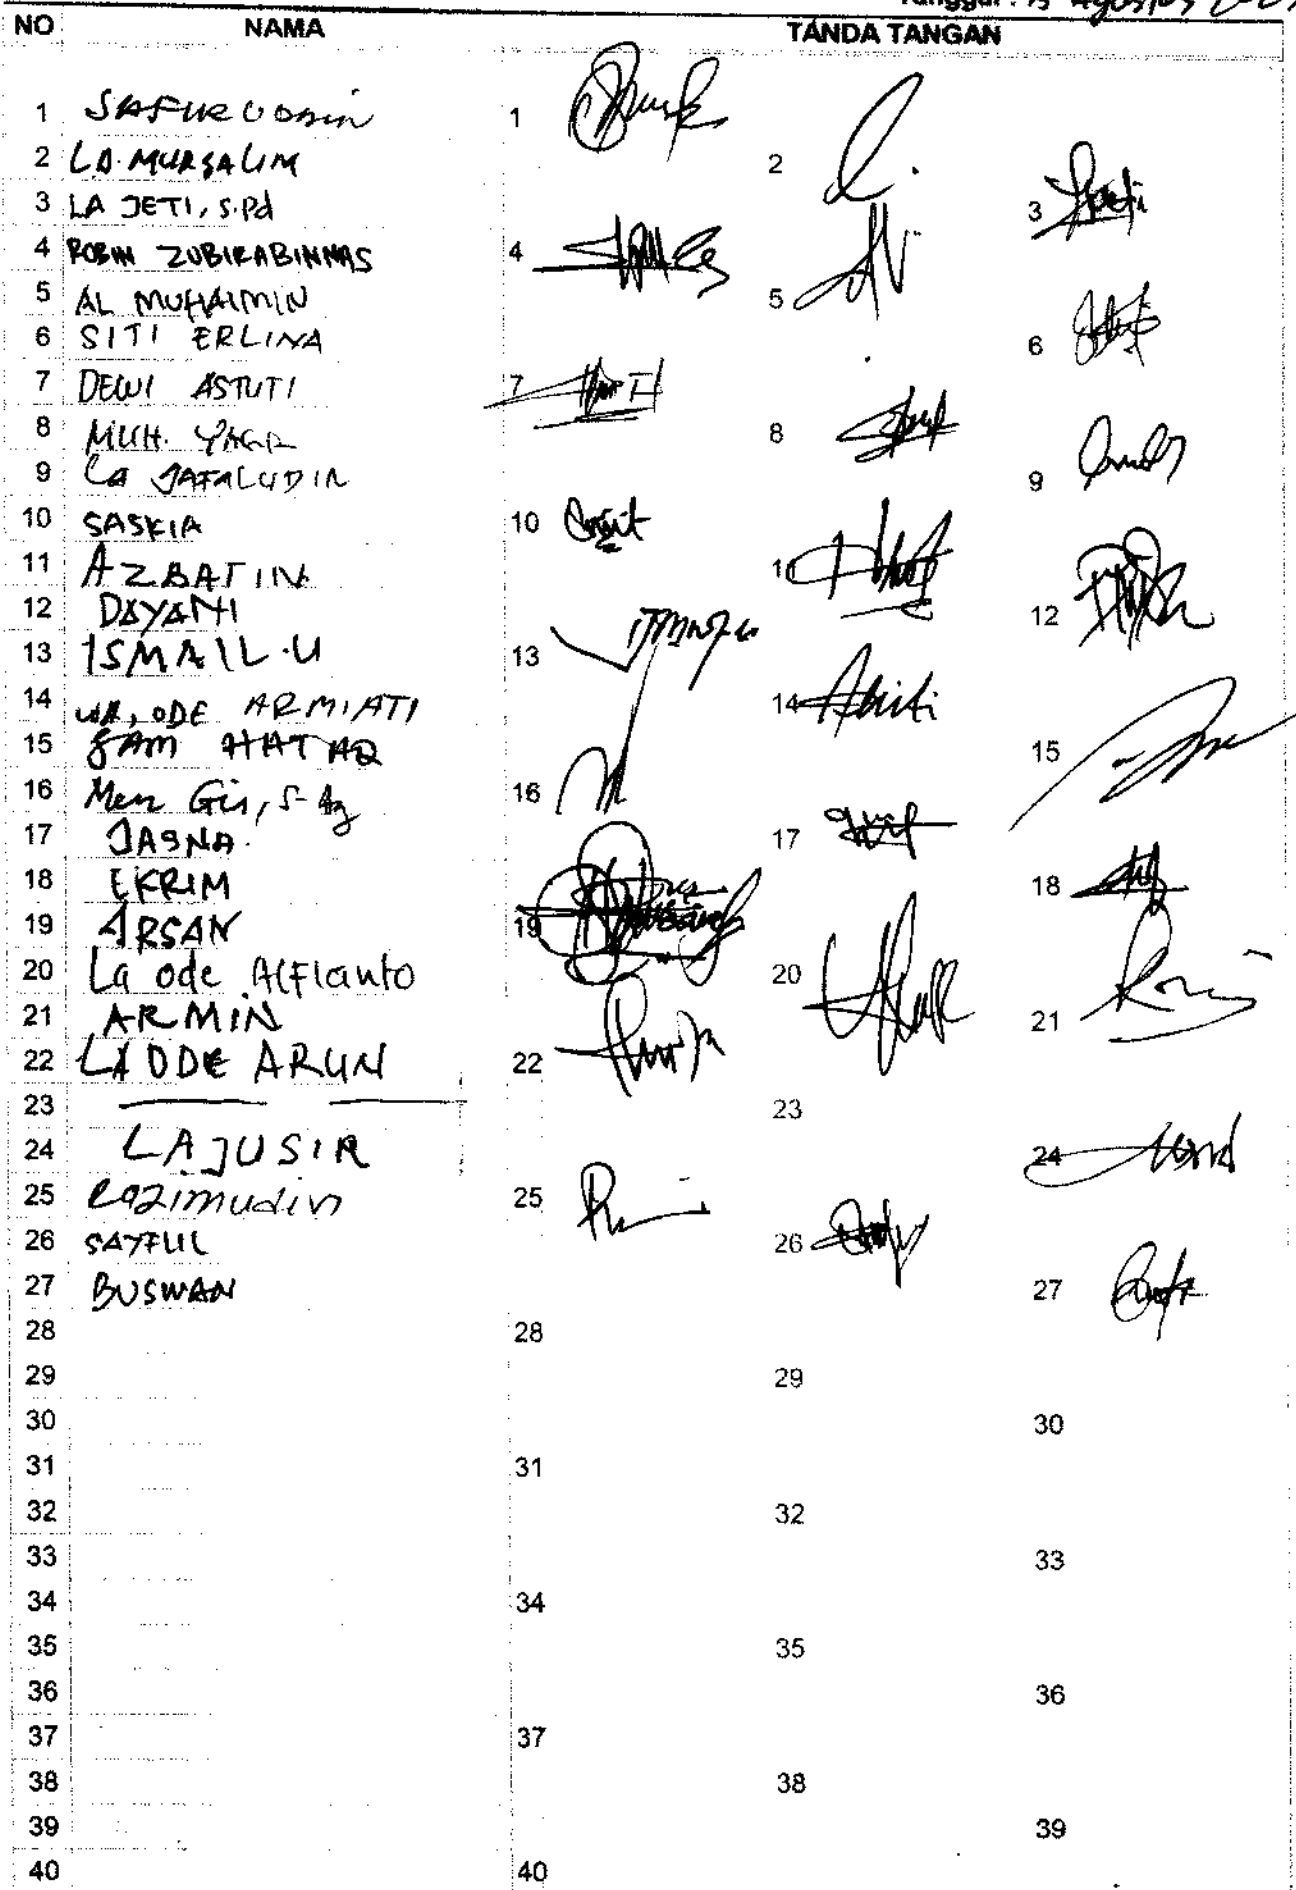 Tanggal : 15 Agustus
NO NAMA TANDA TANGAN
1 SAFURUDDIN 1
2 LA. MURSALIM 2
3 LA JETI, S.Pd 3
4 ROBIN ZUBIRABINNAS 4
5 AL MUHAIMIN 5
6 SITI ERLINA 6
7 DEWI ASTUTI 7
8 MUH. 8
9 La JAFALUDIN 9
10 SASKIA 10
11 AZBATIN 11
12 DAYANI 12
13 ISMAIL.U 13
14 WA, ODE ARMIATI 14
15 SAM HATTA 15
16 16
17 JASNA. 17
18 EKRIM 18
19 ARSAN 19
20 La ode Alflanto 20
21 ARMIN 21
22 LA ODE ARUN 22
23 23
24 LAJUSIR 24
25 Razimudin 25
26 SAYFUL 26
27 BUSWAN 27
28 28
29 29
30 30
31 31
32 32
33 33
34 34
35 35
36 36
37 37
38 38
39 39
40 40